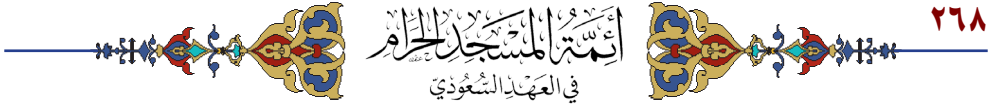 ٢٦٨
أَئِمَّةُ المَسْجِدِ الحَرَامِ
في العَهْدِ السُّعُودِيّ